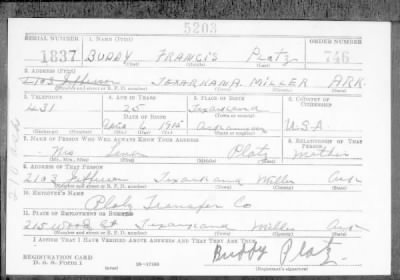 5203
SERIAL NUMBER 1. NAME (Print) ORDER NUMBER
1837 BUDDY FRANCIS Platz 746
(First) (Middle) (Last)
2. ADDRESS (Print)
2103 Jefferson TEXARKANA MILLER ARK.
(Number and street or R. F. D. number) (Town) (County) (State)
3. TELEPHONE 4. AGE IN YEARS 5. PLACE OF BIRTH 6. COUNTRY OF CITIZENSHIP
431 25 Texarkana
DATE OF BIRTH (Town or county)
6 1915 Arkansas U.S.A
(Exchange) (Number) (Mo.) (Day) (Yr.) (State or country)
7. NAME OF PERSON WHO WILL ALWAYS KNOW YOUR ADDRESS 8. RELATIONSHIP OF THAT PERSON
Mrs Platz Mother
(Mr., Mrs., Miss) (First) (Middle) (Last)
9. ADDRESS OF THAT PERSON
2103 Jefferson Texarkana Miller Ark
(Number and street or R. F. D. number) (Town) (County) (State)
10. EMPLOYER'S NAME
Platz Transfer Co
11. PLACE OF EMPLOYMENT OR BUSINESS
215 Wood St Texarkana Miller Ark
(Number and street or R. F. D. number) (Town) (County) (State)
I AFFIRM THAT I HAVE VERIFIED ABOVE ANSWERS AND THAT THEY ARE TRUE.
REGISTRATION CARD
D. S. S. Form 1
(over)
Buddy Platz
(Registrant's signature)